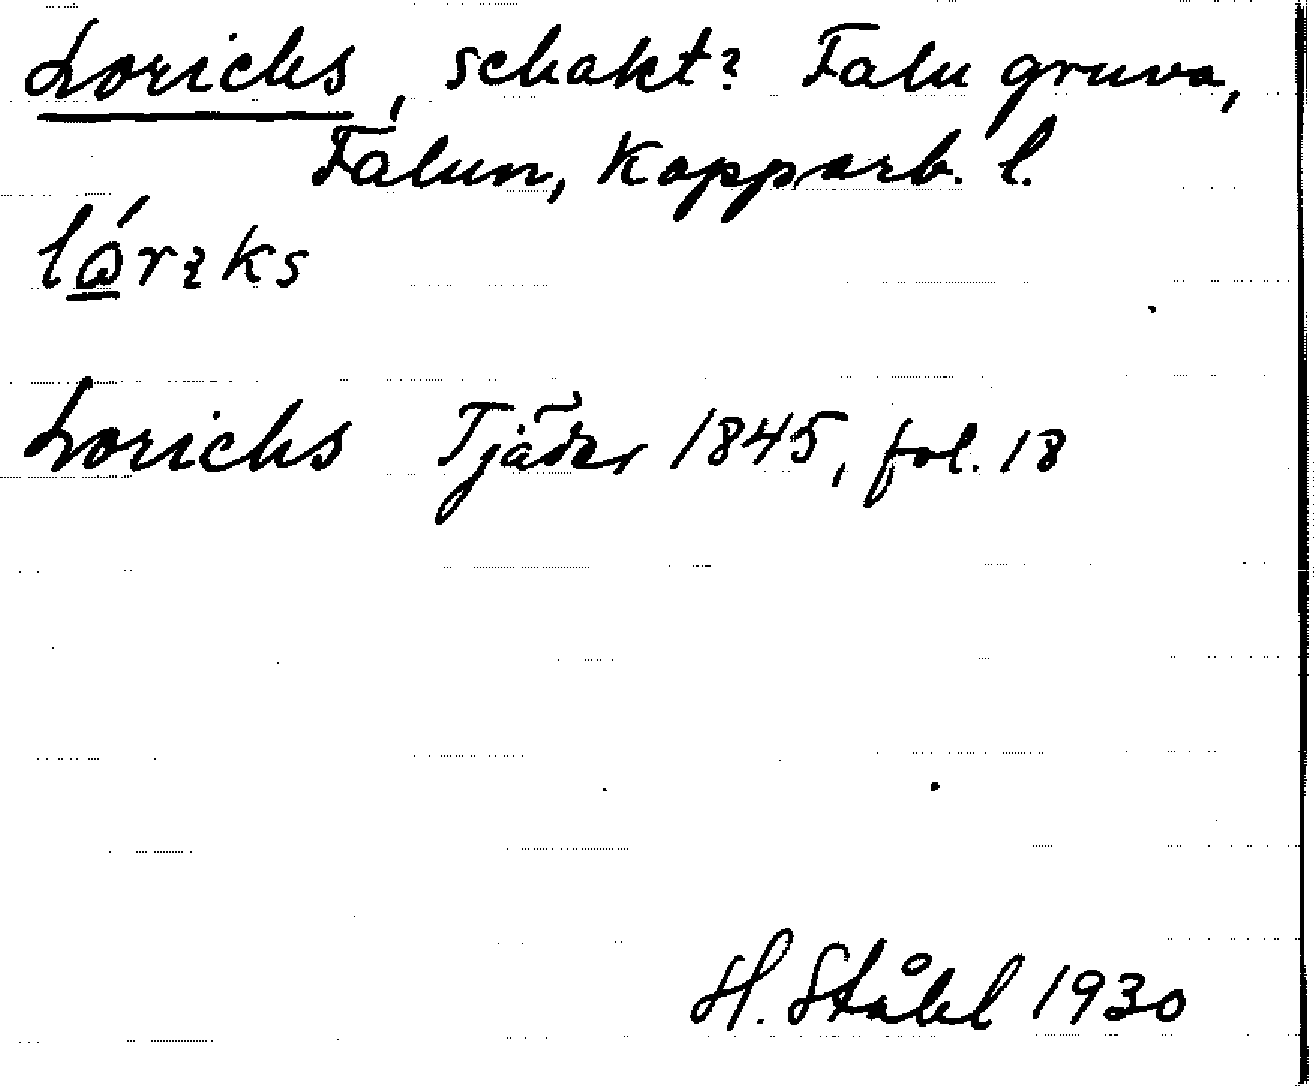 Lorichs, schakt? Falu gruva,
Falun, Kopparb. l.
lórıks
Lorichs Tjäder 1845, fol. 18
H. Ståhl 1930